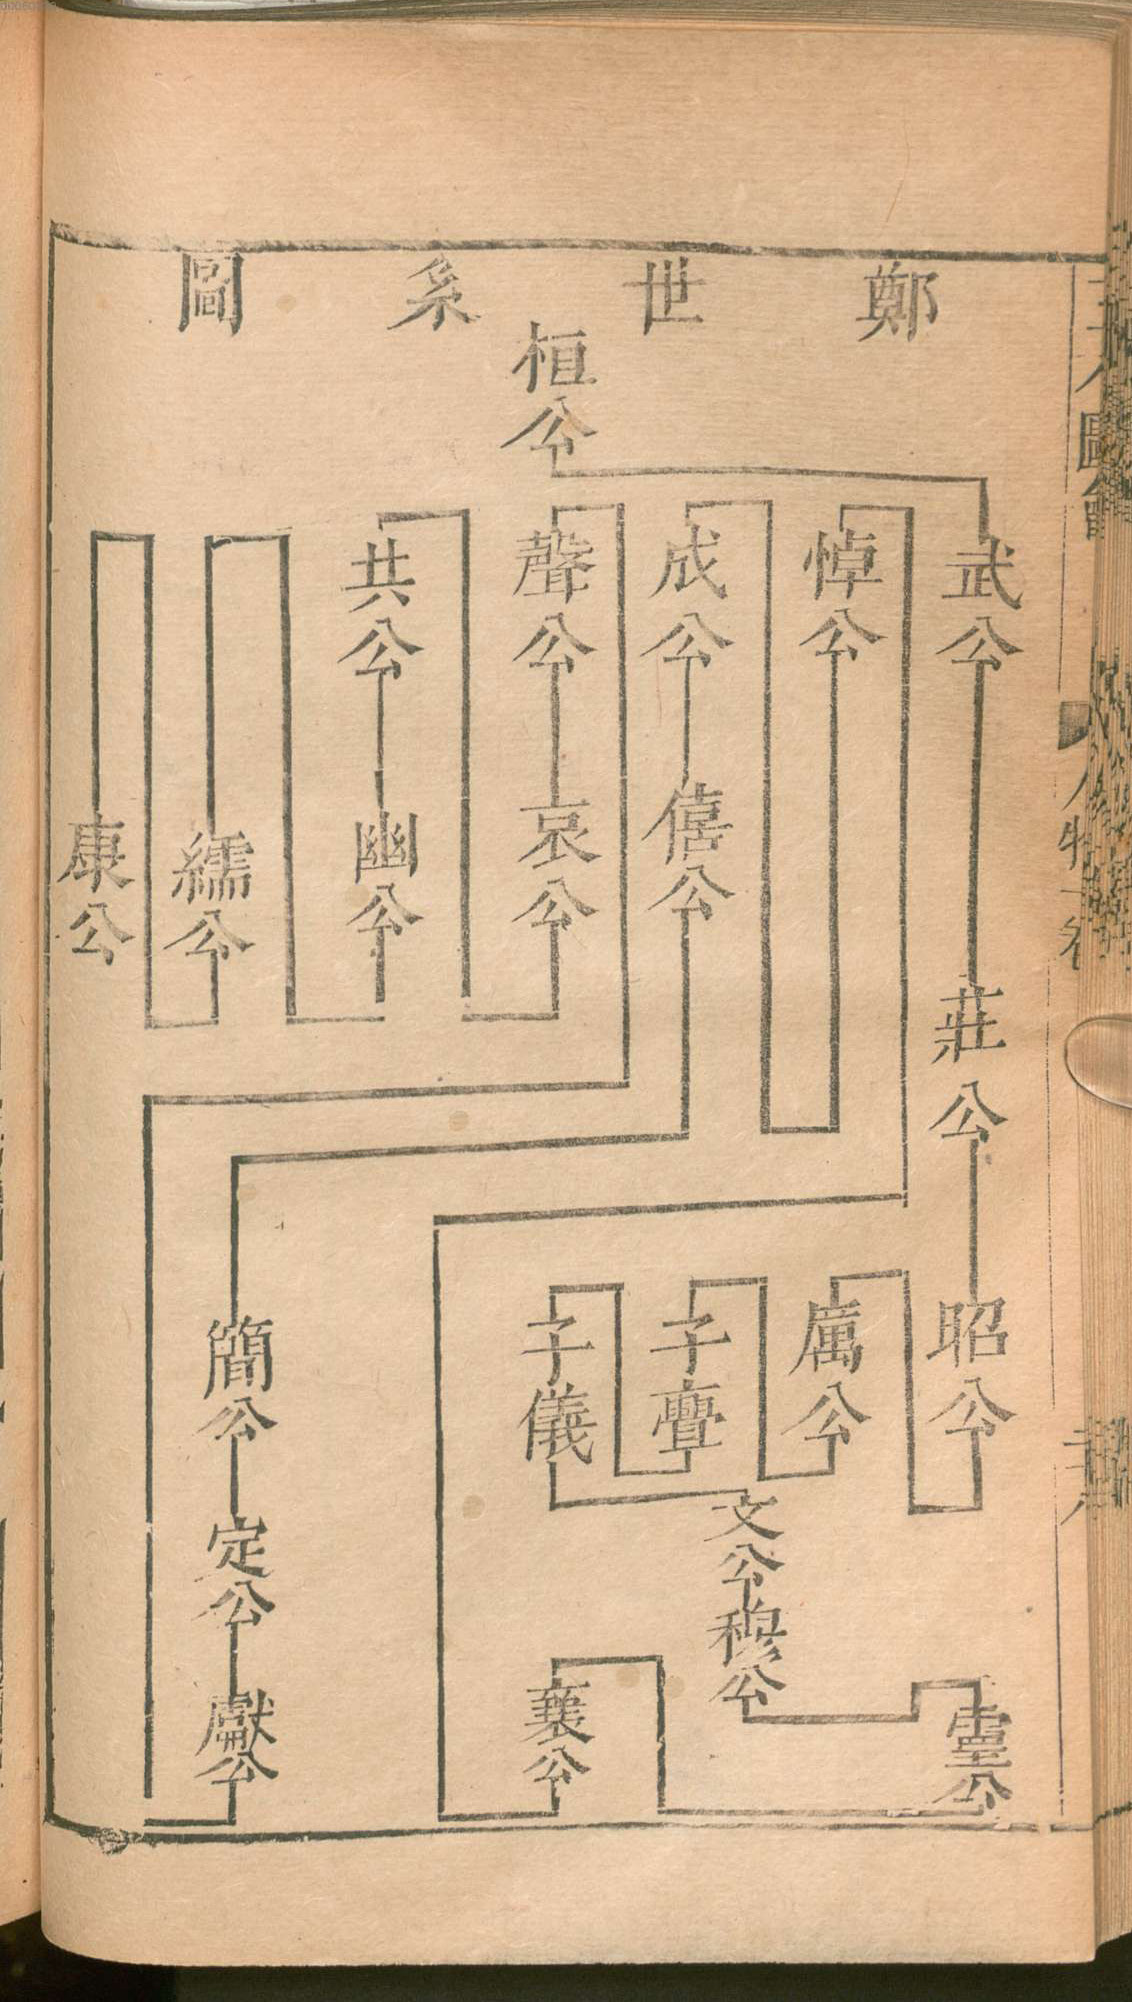 鄭世系圖
桓公
武公
莊公
昭公
厲公
子亹
子儀
文公
穆公
靈公
襄公
悼公
成公
僖公
簡公
定公
獻公
聲公
哀公
共公
幽公
繻公
康公